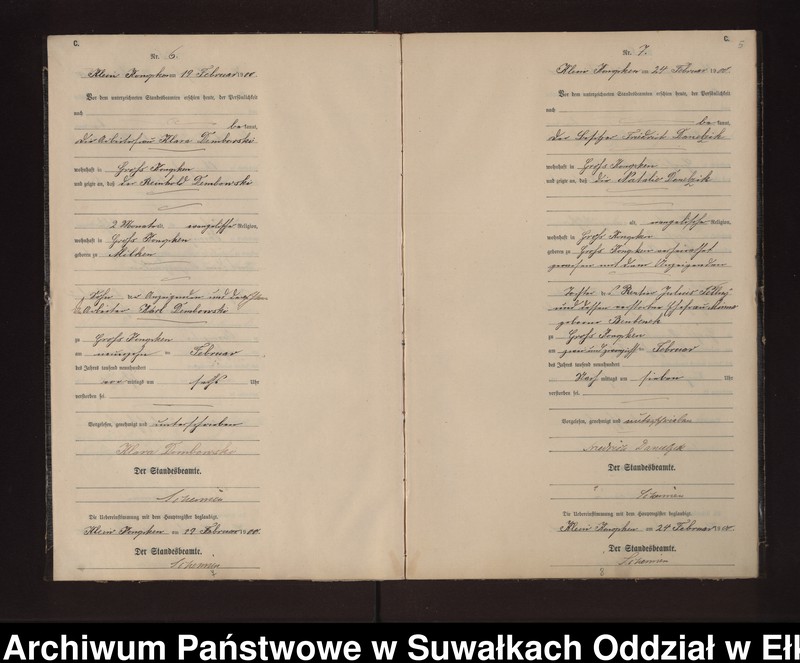 C.
Nr. 6.
Klein am 19 Februar 1900.
Vor dem unterzeichneten Standesbeamten erschien heute, der Persönlichkeit
nach
be kannt,
die Arbeiterfrau Klara Dembowski
wohnhaft in Gross
und zeigte an, daß der Reinhold Dembowski
2 Monate alt, evangelischer Religion,
wohnhaft in Gross
geboren zu Milken
Sohn des Anzeigenden und
Arbeiter Karl Dembowski
zu Gross
am neunzehn ten Februar
des Jahres tausend neunhundert
vor mittags um sechs Uhr
verstorben sei.
Vorgelesen, genehmigt und unterschrieben
Klara Dembowski
Der Standesbeamte.
Die Uebereinstimmung mit dem Hauptregister beglaubigt.
Klein am 19 Februar 1900.
Der Standesbeamte.
C.
Nr. 7.
Klein am 24 Februar 1900.
Vor dem unterzeichneten Standesbeamten erschien heute, der Persönlichkeit
nach
be kannt,
der Besitzer Friedrich
wohnhaft in Gross
und zeigte an, daß die Natalie
alt, evangelischer Religion,
wohnhaft in Gross
geboren zu Gross verheirathet
gewesen mit dem Anzeigenden
Tochter des Rentier Julius
und dessen verstorbene Ehefrau
geborene
zu Gross
am zwei und zwanzigsten Februar
des Jahres tausend neunhundert
Nach mittags um sieben Uhr
verstorben sei.
Vorgelesen, genehmigt und unterschrieben
Friedrich
Der Standesbeamte.
Die Uebereinstimmung mit dem Hauptregister beglaubigt.
Klein am 24 Februar 1900.
Der Standesbeamte.
Archiwum Państwowe w Suwałkach Oddział w Ełk